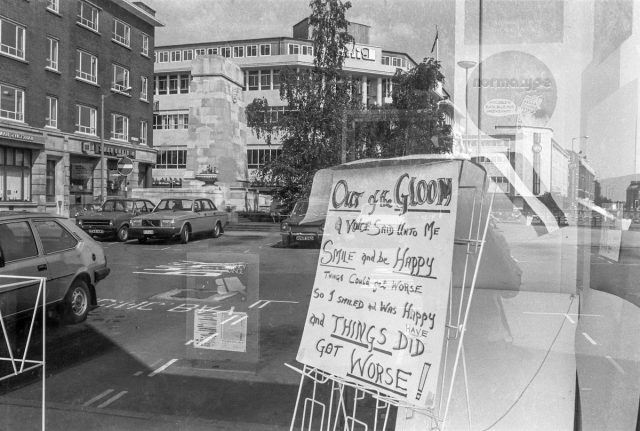 normatype
OUT of the GLOOM
A VOICE SAID UNTO ME
SMILE and be HAPPY
THINGS COULD get WORSE
SO I SMILED and WAS HAPPY
and THINGS HAVE DID
GOT WORSE!